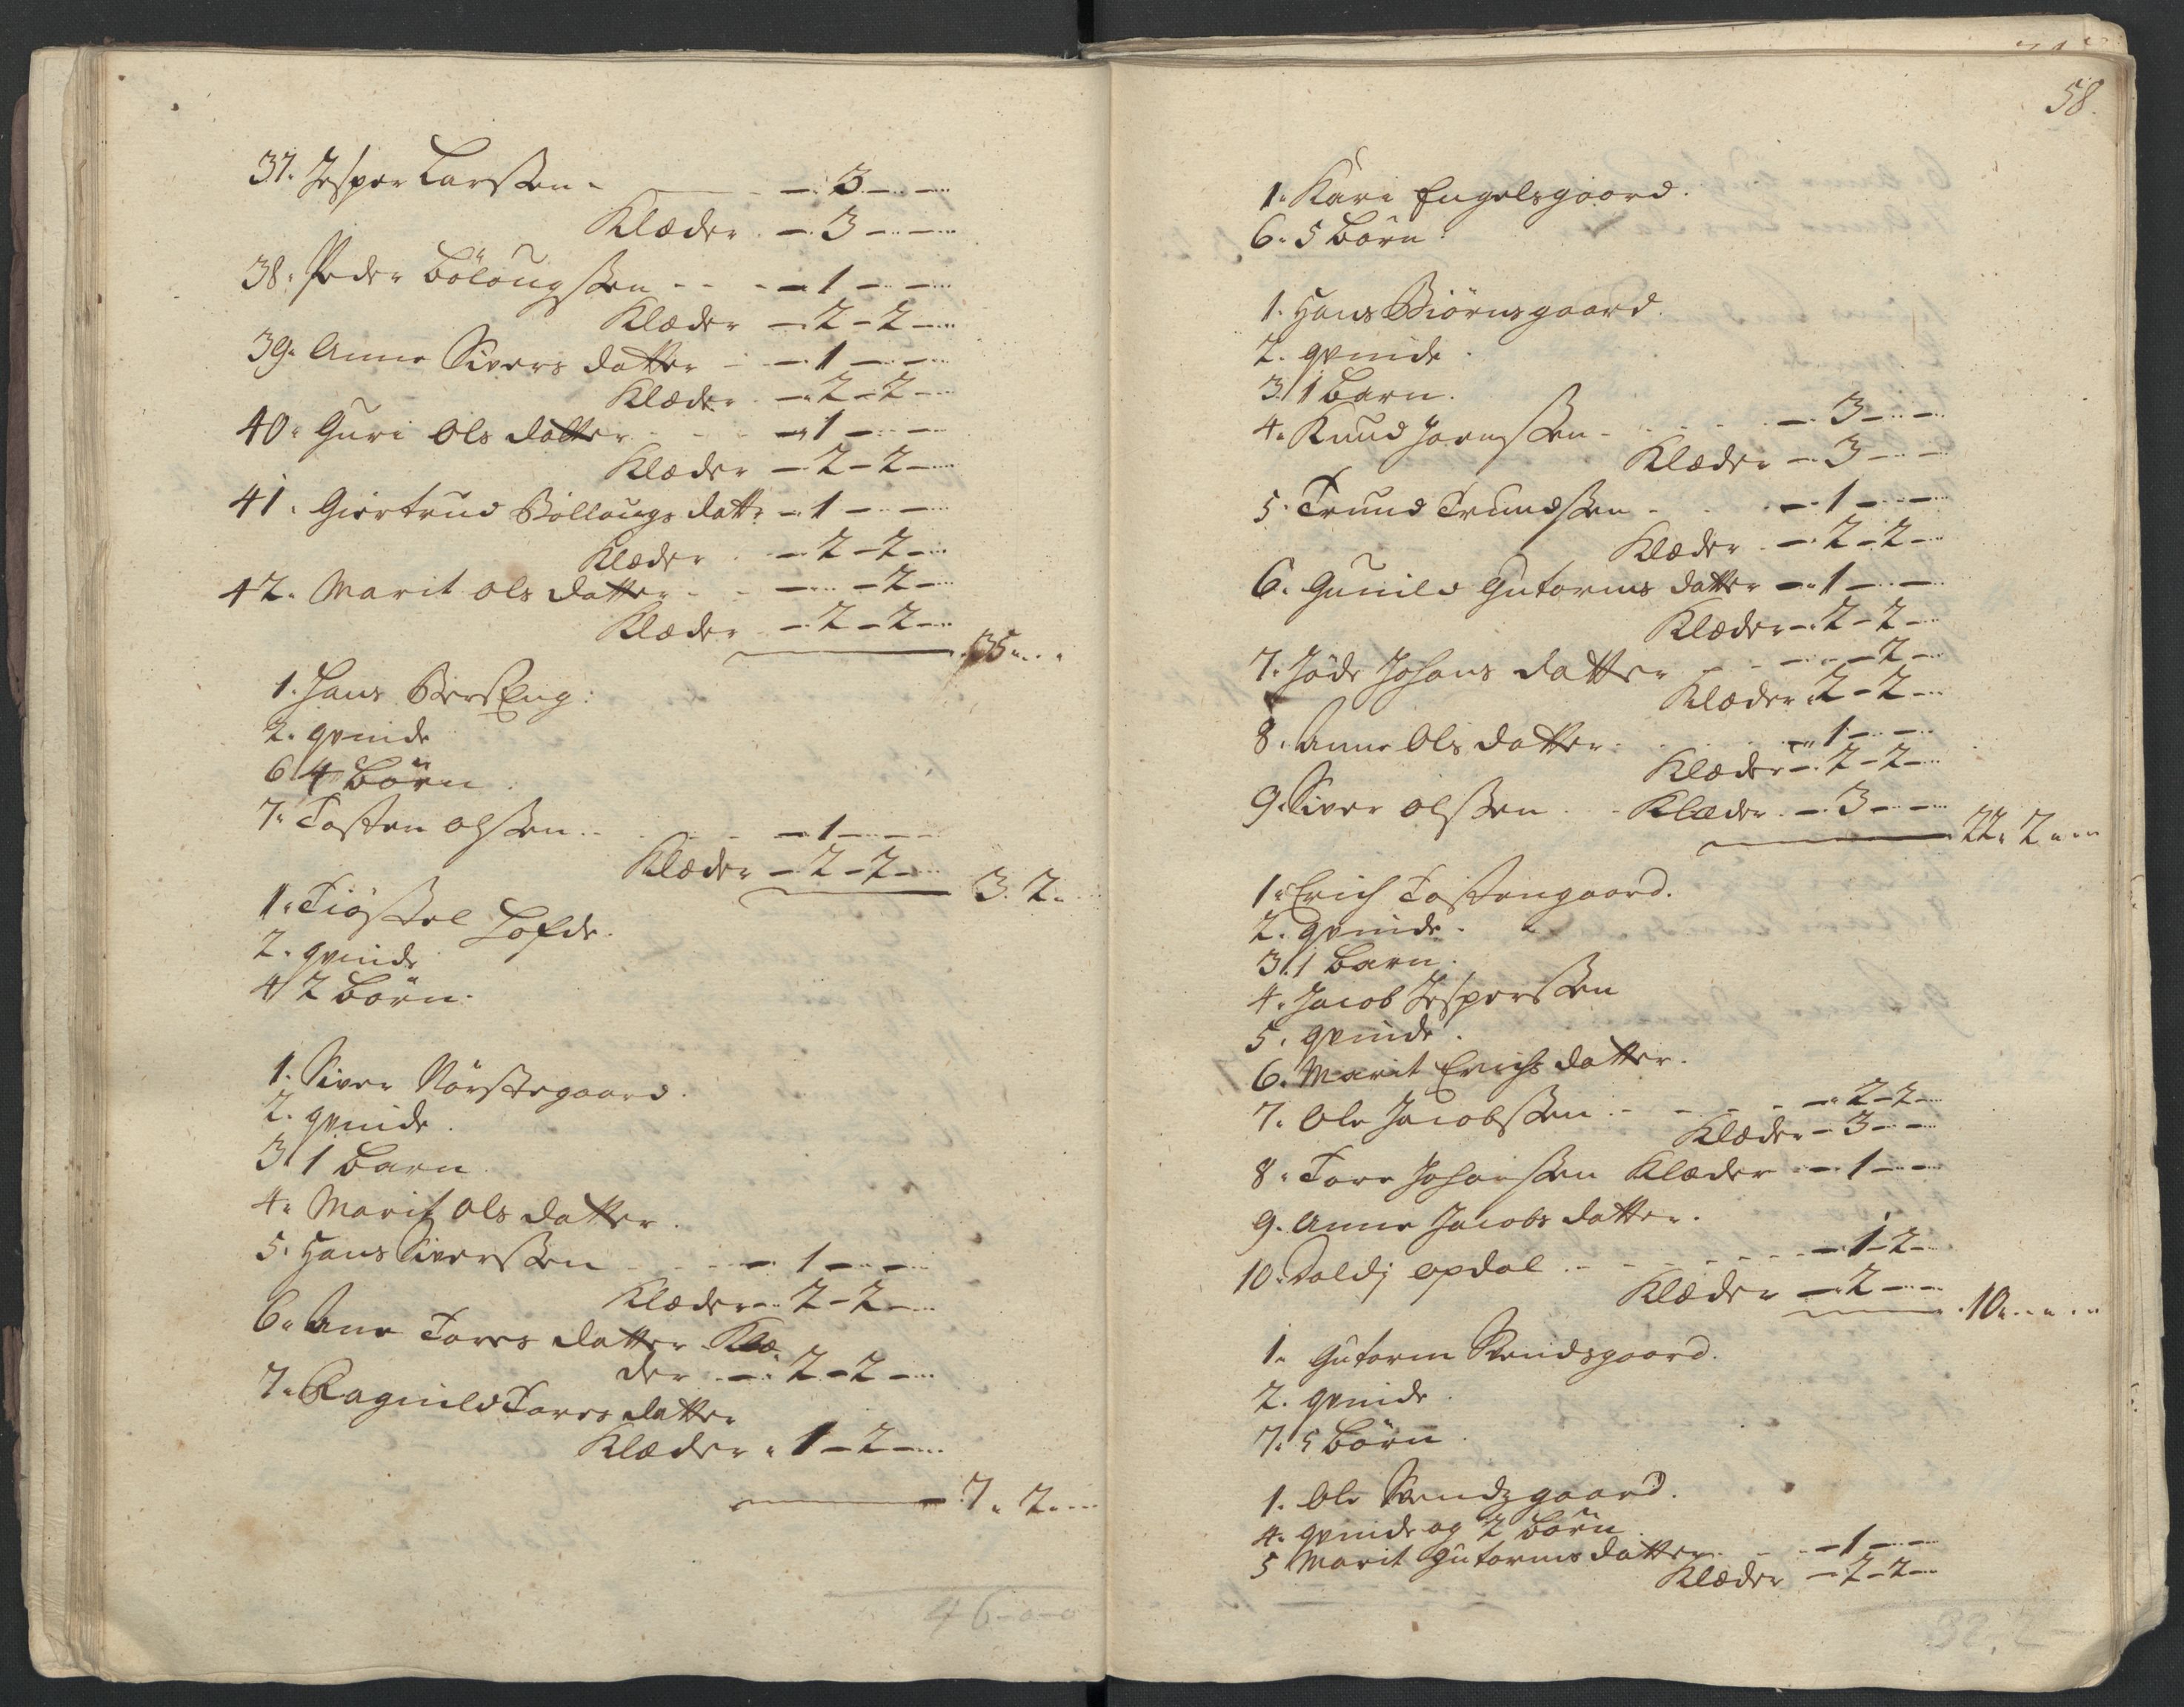 37. Jesper Larssen - — 3 — —
Klæder — 3 — —
38. Peder Bölougssen - - — 1 — —
Klæder — 2 – 2 —
39. Anne Sivers datter — 1 — —
Klæder — 2 – 2 —
40. Guri Ols datter — 1 — —
Klæder — 2 – 2 —
41. Giertrud Böllougs datt: — 1 — —
Klæder — 2 – 2 —
42. Marit Ols datter - — — 2 —
Klæder — 2 – 2 —
35 — —
1. Hans BersEng:
2. qvinde
6. 4 Börn
7. Tosten olssen - — 1 — —
Klæder — 2 – 2 —
3. 2.
1. Tiöstel Lofde.
2. qvinde
4. 2 Börn.
1. Siver Nörstegaard.
2. qvinde.
3. 1 Barn
4. Marit Ols datter.
5. Hans Siverssen — 1 — —
Klæder — 2 – 2 —
6. Ane Tores datter Klæ-
der — 2 – 2 —
7. Ragnild Tores datter
Klæder 1 – 2 —
7. 2.
46–0–0
58.
1. Kari Engelsgaard.
6. 5 Börn.
1. Hans Biörnsgaard.
2. qvinde.
3. 1 Barn.
4. Knud Joenssen - — 3 — —
Klæder — 3 — —
5. Trund Trundssen - — 1 — —
Klæder — 2 – 2 —
6. Gunild Gutorms datter — 1 — —
Klæder — 2 – 2 —
7. Jöde Johans datter — — 2 —
Klæder 2 – 2 —
8. Anne Ols datter — 1 — —
Klæder — 2 – 2 —
9. Siver olssen - Klæder — 3 — —
22. 2.
1. Erich Tostengaard.
2. qvinde.
3. 1 Barn.
4. Jacob Jesperssen
5. qvinde.
6. Marit Erichs datter.
7. Ole Jacobssen - — 2 – 2 —
Klæder — 3 — —
8. Tore Johanssen Klæder — 1 — —
9. Anne Jacobs datter.
10. opdal - — 1 – 2 —
Klæder — 2 — —
10 — —
1. Gutorm Svendsgaard.
2. qvinde.
7. 5 Börn.
1. Ole Svendzgaard.
4. qvinde og 2 Börn
5 Marit Gutorms datter — 1 — —
Klæder — 2 – 2 —
32. 2